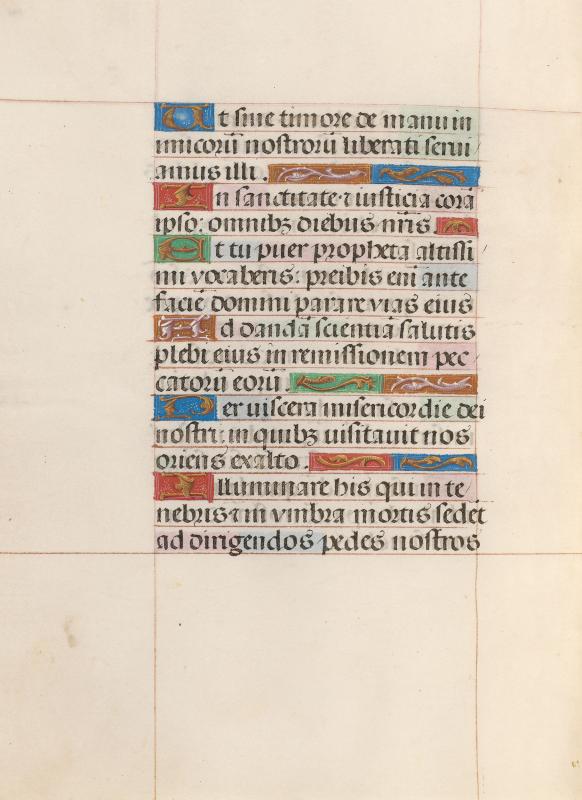 Ut sine timore de manu in
imicorū nostrorū liberati serui
amus illi.
In sanctitate ⁊ iusticia corā
ipso: omnibꝫ diebus nr̄is.
Et tu puer propheta altissi
mi vocaberis: preibis eni ante
faciē domini parare vias eius
Ad dandā scientiā salutis
plebi eius in remissionem pec
catorū eorū
Per uiscera misericordie dei
nostri: in quibꝫ uisitauit nos
oriens exalto.
Illuminare his qui in te
nebris ⁊ in vmbra mortis sedēt
ad dirigendos pedes nostros